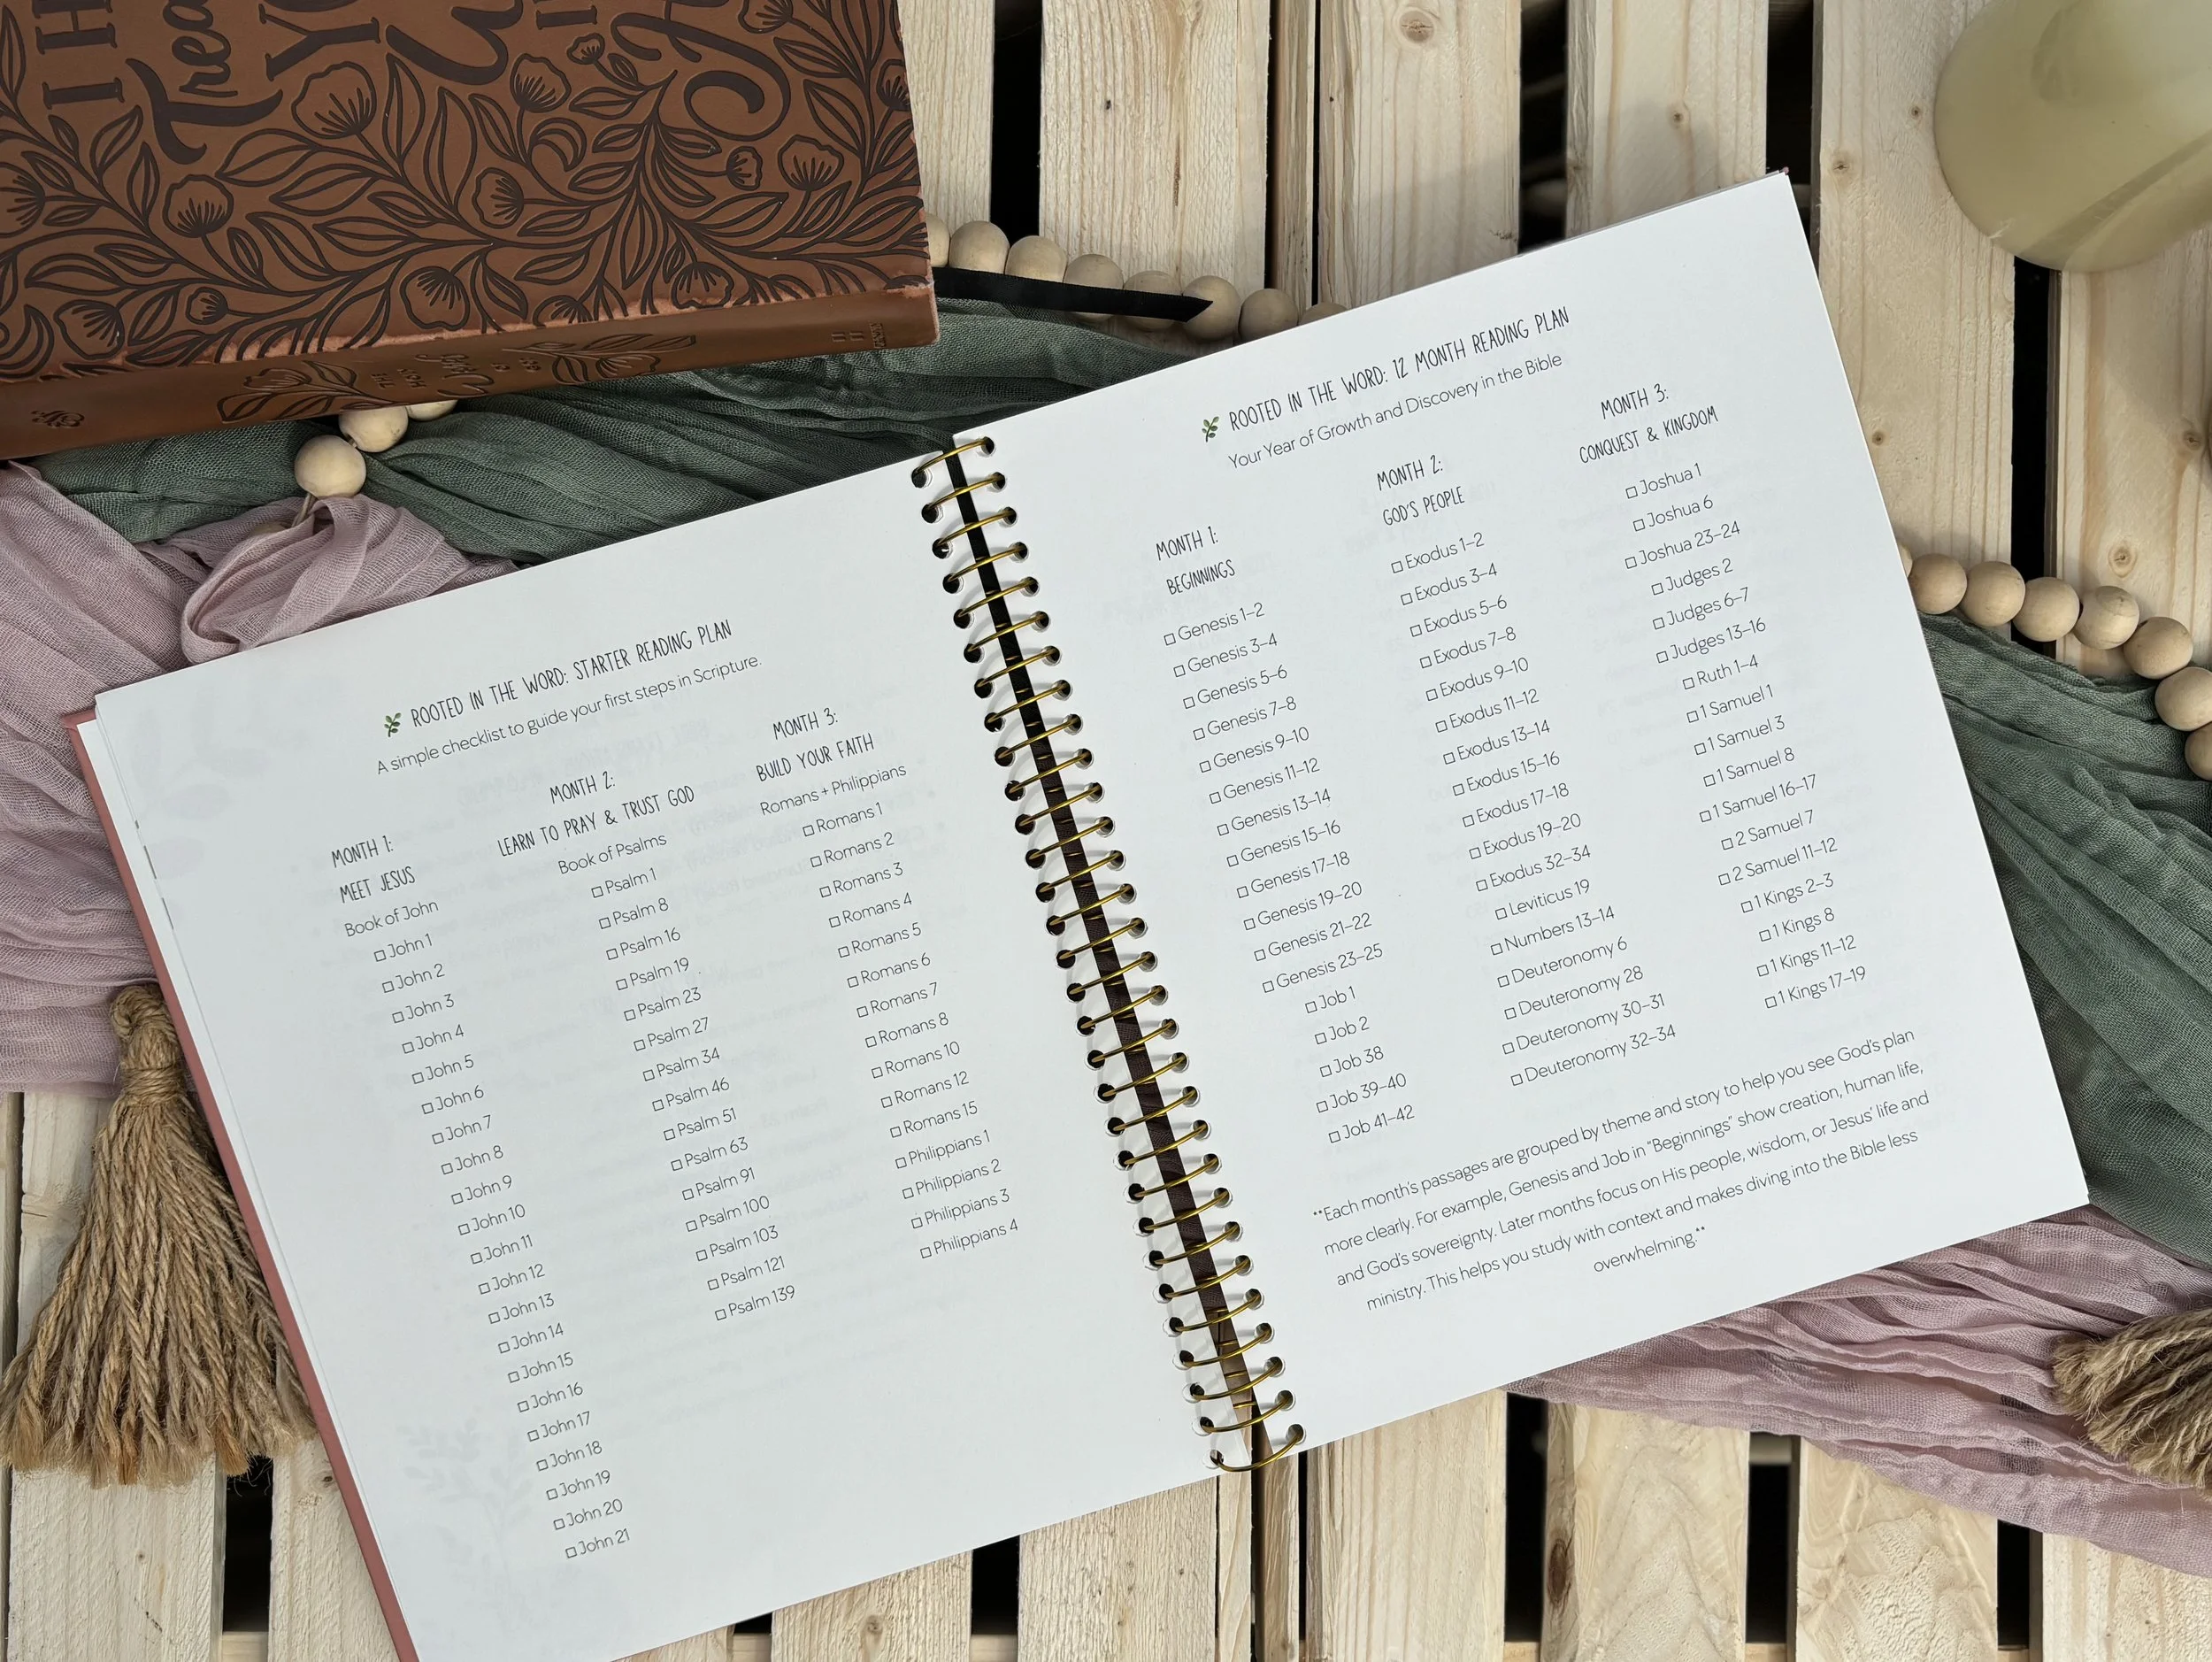 Trea
ROOTED IN THE WORD: STARTER READING PLAN
A simple checklist to guide your first steps in Scripture.
MONTH 1:
MEET JESUS
Book of John
John 1
John 2
John 3
John 4
John 5
John 6
John 7
John 8
John 9
John 10
John 11
John 12
John 13
John 14
John 15
John 16
John 17
John 18
John 19
John 20
John 21
MONTH 2:
LEARN TO PRAY & TRUST GOD
Book of Psalms
Psalm 1
Psalm 8
Psalm 16
Psalm 19
Psalm 23
Psalm 27
Psalm 34
Psalm 46
Psalm 51
Psalm 63
Psalm 91
Psalm 100
Psalm 103
Psalm 121
Psalm 139
MONTH 3:
BUILD YOUR FAITH
Romans + Philippians
Romans 1
Romans 2
Romans 3
Romans 4
Romans 5
Romans 6
Romans 7
Romans 8
Romans 10
Romans 12
Romans 15
Philippians 1
Philippians 2
Philippians 3
Philippians 4
ROOTED IN THE WORD: 12 MONTH READING PLAN
Your Year of Growth and Discovery in the Bible
MONTH 1:
BEGINNINGS
Genesis 1–2
Genesis 3–4
Genesis 5–6
Genesis 7–8
Genesis 9–10
Genesis 11–12
Genesis 13–14
Genesis 15–16
Genesis 17–18
Genesis 19–20
Genesis 21–22
Genesis 23–25
Job 1
Job 2
Job 38
Job 39–40
Job 41–42
MONTH 2:
GOD'S PEOPLE
Exodus 1–2
Exodus 3–4
Exodus 5–6
Exodus 7–8
Exodus 9–10
Exodus 11–12
Exodus 13–14
Exodus 15–16
Exodus 17–18
Exodus 19–20
Exodus 32–34
Leviticus 19
Numbers 13–14
Deuteronomy 6
Deuteronomy 28
Deuteronomy 30–31
Deuteronomy 32–34
MONTH 3:
CONQUEST & KINGDOM
Joshua 1
Joshua 6
Joshua 23–24
Judges 2
Judges 6–7
Judges 13–16
Ruth 1–4
1 Samuel 1
1 Samuel 3
1 Samuel 8
1 Samuel 16–17
2 Samuel 7
2 Samuel 11–12
1 Kings 2–3
1 Kings 8
1 Kings 11–12
1 Kings 17–19
**Each month's passages are grouped by theme and story to help you see God's plan
more clearly. For example, Genesis and Job in "Beginnings" show creation, human life,
and God's sovereignty. Later months focus on His people, wisdom, or Jesus' life and
ministry. This helps you study with context and makes diving into the Bible less
overwhelming.**